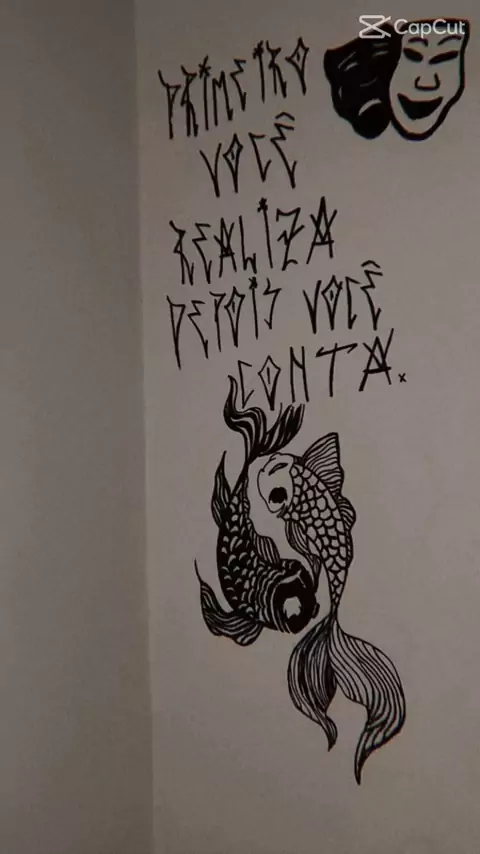 CapCut
PRIMEIRO
VOCÊ
REALIZA
DEPOIS VOCÊ
CONTA.